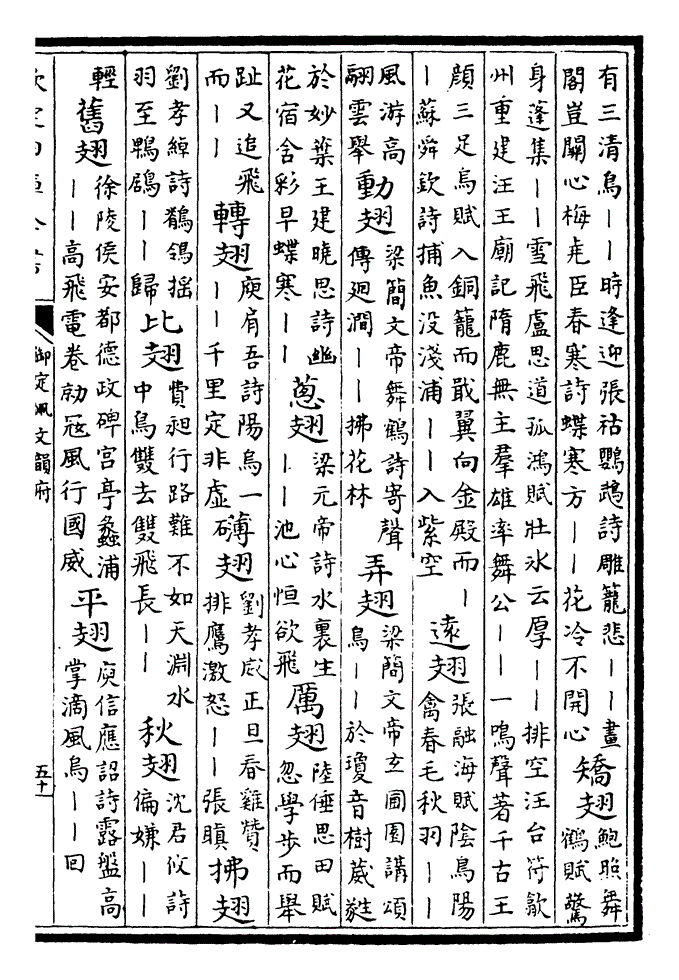 有三清鳥｜｜時逢迎張祜鸚鵡詩雕籠悲｜｜畫
閣豈關心梅堯臣春寒詩蝶寒方｜｜花冷不開心
矯翅
鮑照舞
鶴賦驚
身蓬集｜｜雪飛盧思道孤鴻賦壯氷云厚｜｜排空汪台符歙
州重建汪王廟記隋鹿無主羣雄率舞公｜｜一鳴聲著千古王
顔三足烏賦入銅籠而戢翼向金殿而｜
｜蘇舜欽詩捕魚没淺浦｜｜入紫空
遠翅
張融海賦陰鳥陽
禽春毛秋羽｜｜
風游高
翮雲舉
動翅
梁簡文帝舞鶴詩寄聲
傳迴澗｜｜拂花林
弄翅
梁簡文帝玄圃園講頌
鳥｜｜於瓊音樹葳蕤
於妙葉王建曉思詩幽
花宿含彩早蝶寒｜｜
蔥翅
梁元帝詩水裏生
｜｜池心恒欲飛
厲翅
陸倕思田賦
忽學步而舉
趾又追飛
而｜｜
轉翅
庾肩吾詩陽烏一
｜｜千里定非虚
礴翅
劉孝威正旦春雞贊
排鷹激怒｜｜張瞋
拂翅
劉孝綽詩鶺鴒摇
羽至鵯鶋｜｜歸
比翅
費昶行路難不如天淵水
中鳥雙去雙飛長｜｜
秋翅
沈君攸詩
偏嫌｜｜
輕
舊翅
徐陵侯安都德政碑宫亭蠡浦
｜｜高飛電卷勍寇風行國威
平翅
庾信應詔詩露盤高
掌滴風烏｜｜回
欽定四庫全書
御定佩文韻府
五十